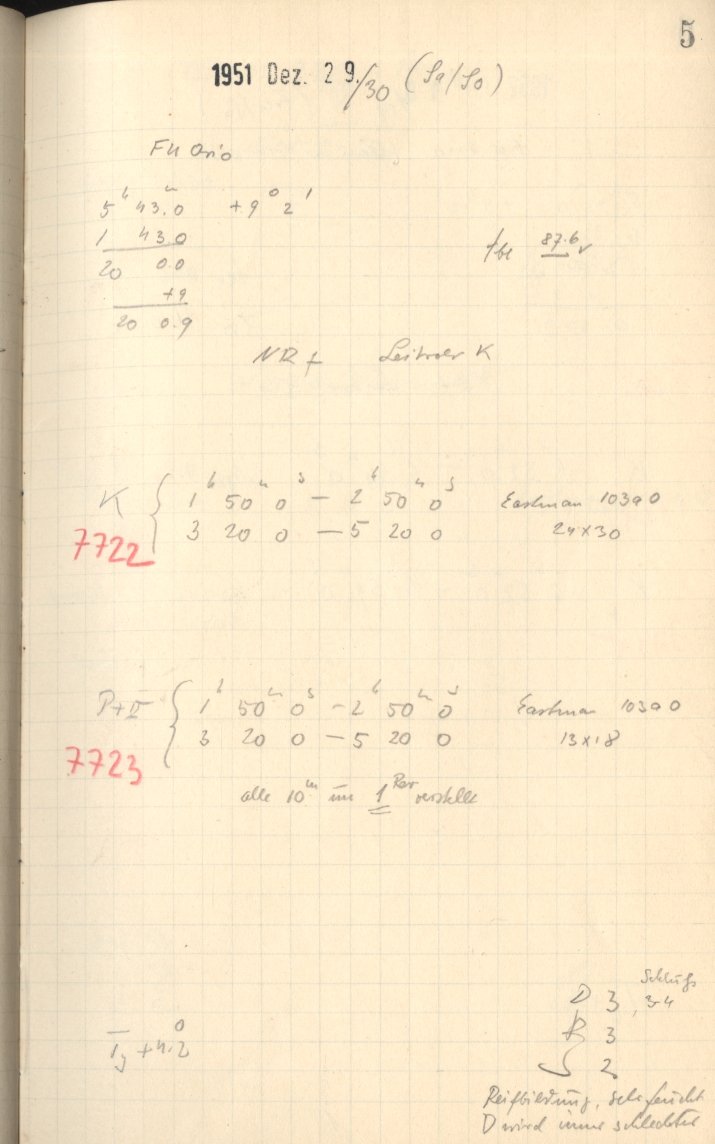 5
1951 Dez. 29./30 (Sa/So)
FU Orio
5h 43.m0 +9° 2'
1 43.0
20 0.0
+9
20 0.9
87.6
NR f Leitrohr K
K { 1h 50m 0s - 2h 50m 0s Eastman 103a0
3 20 0 - 5 20 0 24x30
7722
P+II { 1h 50m 0s - 2h 50m 0s Eastman 103a0
3 20 0 - 5 20 0 13x18
7723
alle 10m um 1 Rev verstellt
Schluß
D 3, 3-4
R 3
S 2
+4.°2
Reifbildung, sehr feucht
D wird immer schlechter